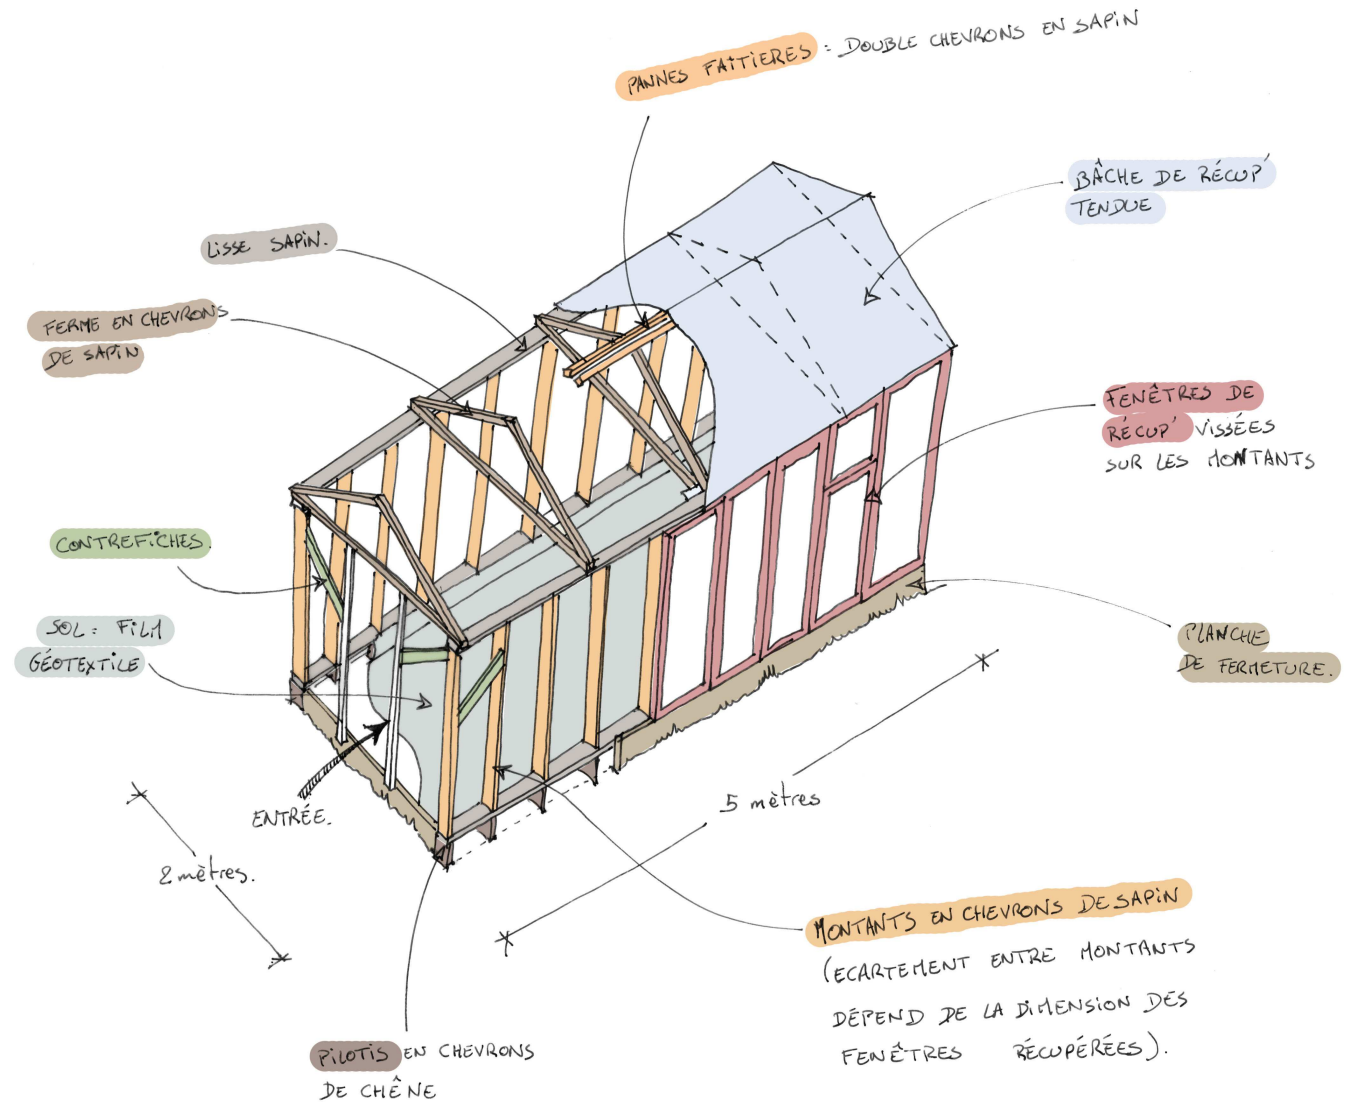 PANNES FAÎTIERES : DOUBLE CHEVRONS EN SAPIN
BÂCHE DE RÉCUP'
TENDUE
LISSE SAPIN.
FERME EN CHEVRONS
DE SAPIN
FENÊTRES DE
RÉCUP' VISSÉES
SUR LES MONTANTS
CONTREFICHES.
SOL = FILM
GÉOTEXTILE
PLANCHE
DE FERMETURE.
ENTRÉE.
5 mètres
2 mètres.
MONTANTS EN CHEVRONS DE SAPIN
(ECARTEMENT ENTRE MONTANTS
DÉPEND DE LA DIMENSION DES
FENÊTRES RÉCUPÉRÉES).
PILOTIS EN CHEVRONS
DE CHÊNE